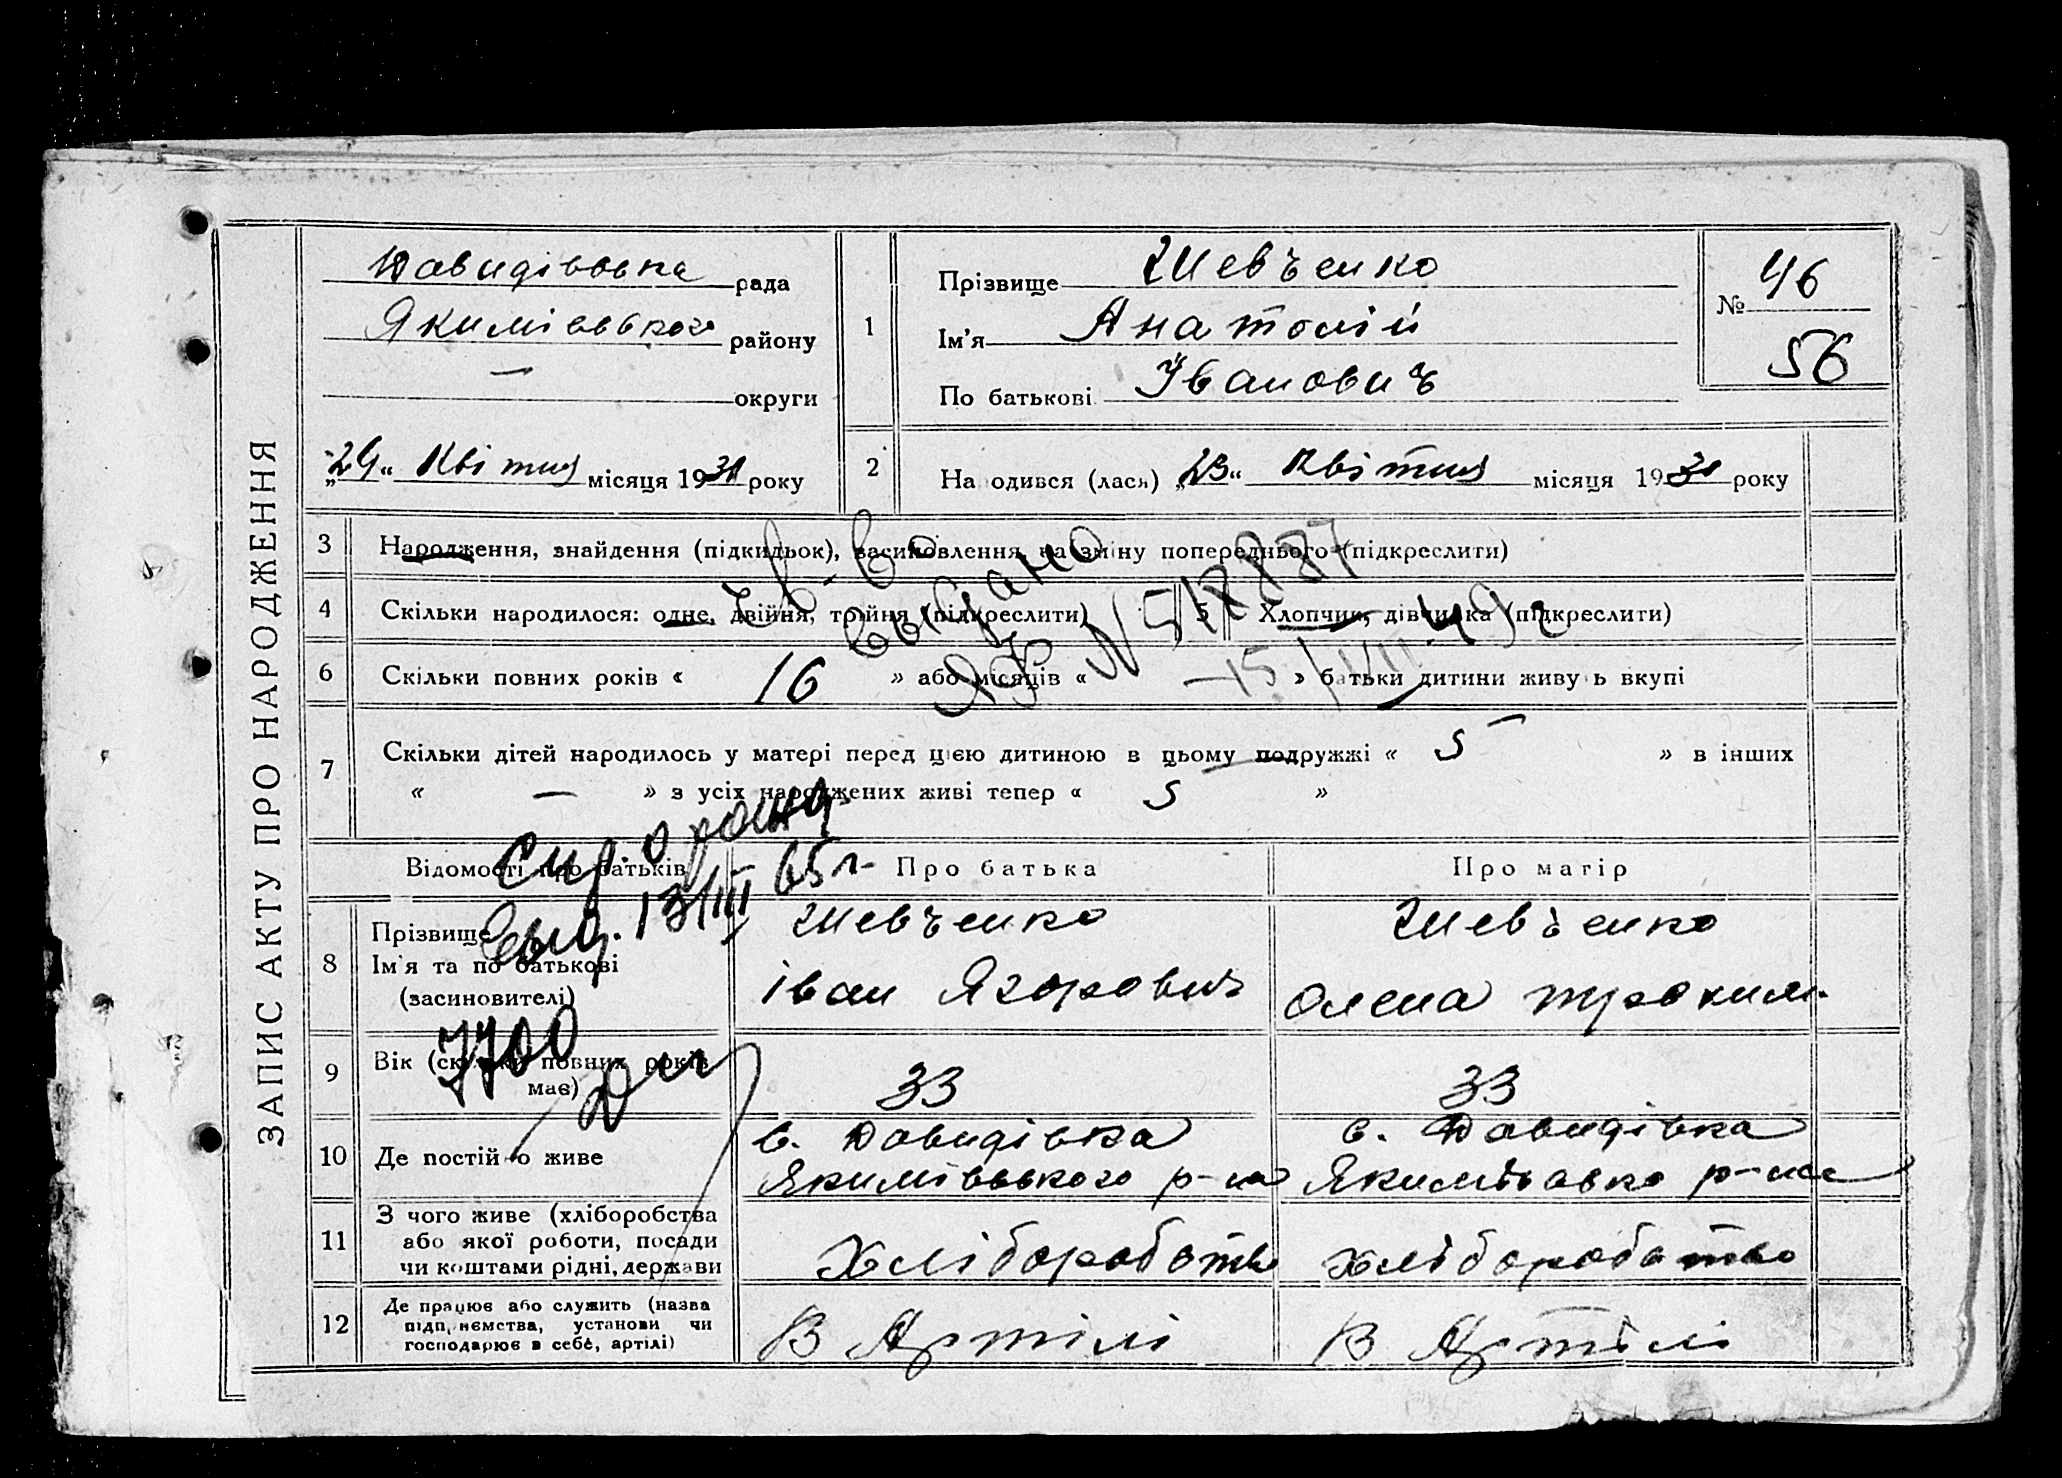 ЗАПИС АКТУ ПРО НАРОДЖЕННЯ
Давидівська рада
Якимівського району
— округи
„24“ Квітня місяця 1931 року
1
Прізвище Шевченко
Ім'я Анатолій
По батькові Іванович
№ 46
56
2
Народився (лась) „23“ Квітня місяця 19 року
3 Народження, знайдення (підкидьок), засиновлення, на зміну попереднього (підкреслити)
4 Скільки народилося: одне, двійня, трійня (підкреслити)
5 Хлопчик, дівчинка (підкреслити)
св-во
выдано
ЯФ N 518887
15/VII-49г
6 Скільки повних років « 16 » або місяців « — » батьки дитини живуть вкупі
7 Скільки дітей народилось у матері перед цією дитиною в цьому подружжі « 5 » в інших
« — » з усіх народжених живі тепер « 5 »
выд. 13/III 65 г.
7700
Відомості про батьків
Про батька
Про матір
8 Прізвище
Ім'я та по батькові
(засиновителі)
Шевченко
Іван Ягорович
Шевченко
Олена Трохим.
9 Вік (скільки повних років
має)
33
33
10 Де постійно живе
с. Давидівка
Якимівського р-на
с. Давидівка
р-на
11 З чого живе (хліборобства
або якої роботи, посади
чи коштами рідні, держави
Хліборобство
хліборобство
12 Де працює або служить (назва
підприємства, установи чи
господарює в себе, артілі)
В Артілі
В Артілі